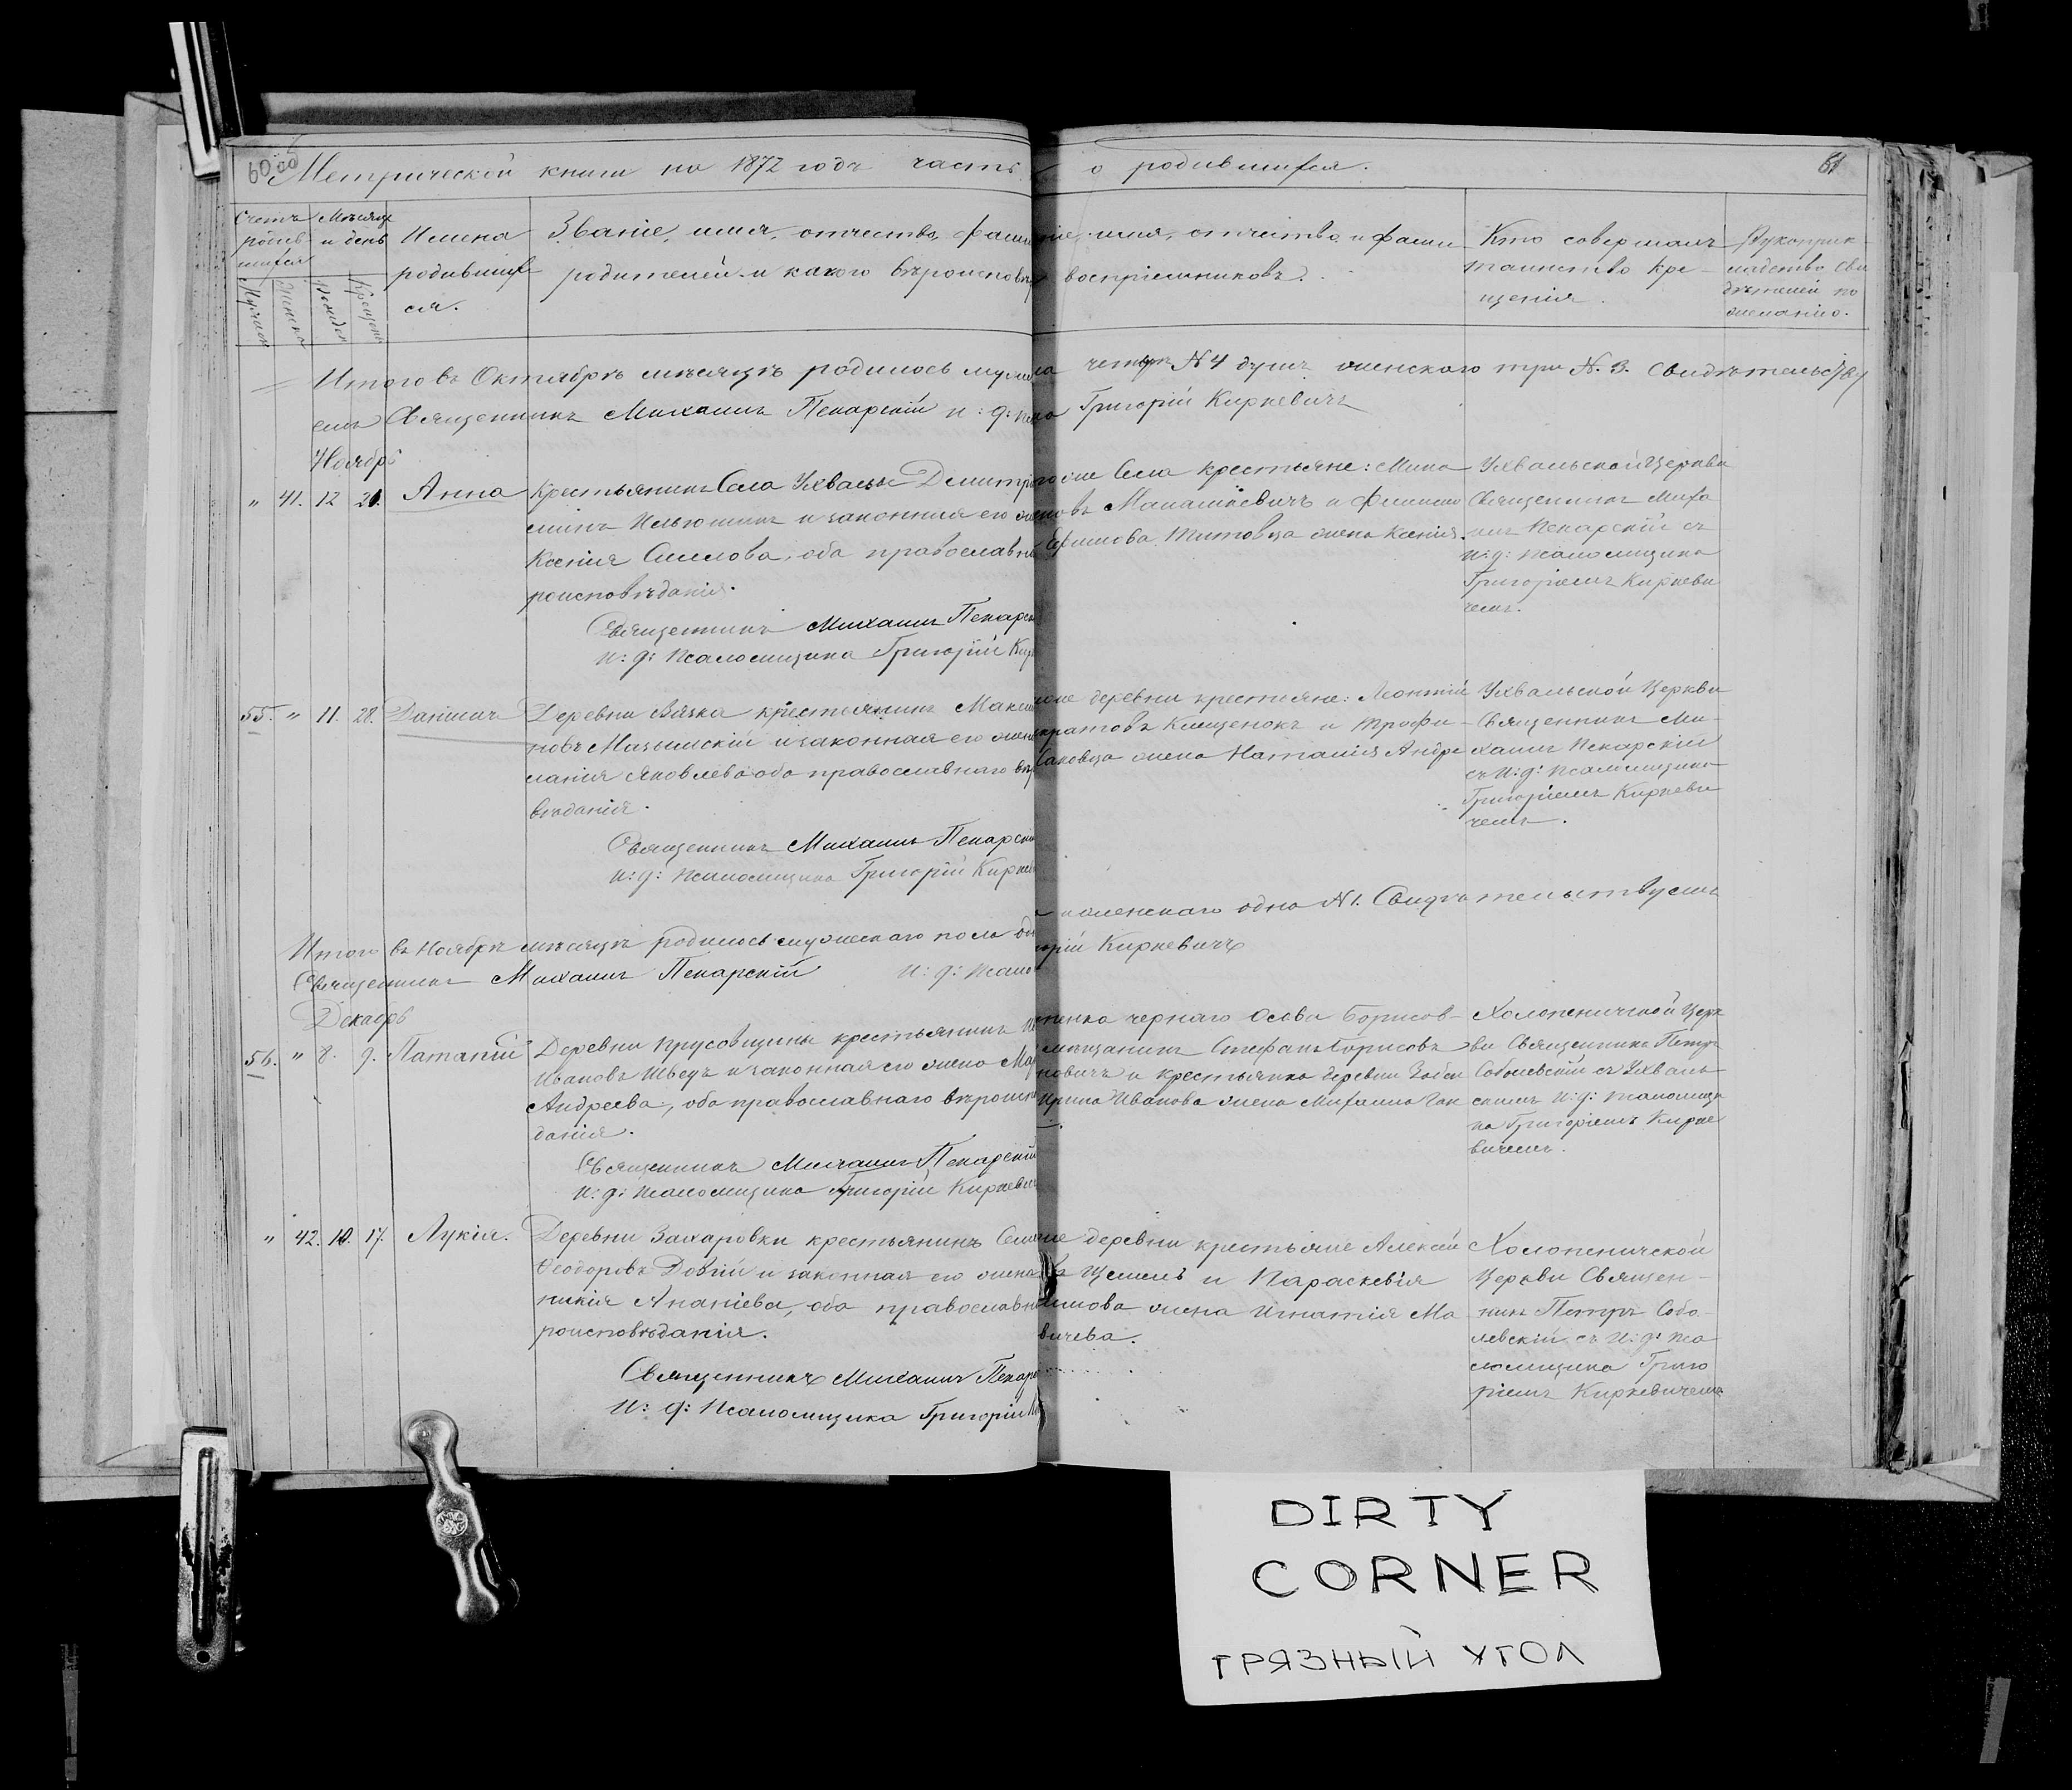 60
Метрической книги на 1872 годъ часть
о родившихся.
61
Счетъ родившихся
Мѣсяцъ и день
Имена родившихся.
Званіе, имя, отчество, фами
родителей и какого вѣроисповѣ
имя, отчество и фами
воспріемниковъ.
Кто совершалъ
таинство кре
щенія.
Рукоприк
ладство сви
дѣтелей по
желанію.
Итого въ Октябрѣ мѣсяцѣ родилось муж
N 4 душъ женскаго три N. 3. Свидѣтельству
емъ Священникъ Михаилъ Пекарскій и: д:
Григорій Киркевичъ
Ноябрь
" 41. 12 21. Анна
Крестьянинъ Села Ухвалы Димитрі
Ильюшинъ и законная его жена
Ксенія, оба православн
роисповѣданія.
Священникъ Михаилъ Пекарск
И: д: Псаломщика Григорій Кир
Села крестьяне:
Титовца жена Ксенія.
Ухвальской Церкви
Священникъ Миха
илъ Пекарскій съ
И: д: Псаломщика
Григоріемъ Киркеви
чемъ.
55. " 11. 28. Даніилъ
Деревни Вязка крестьянинъ Макси
новъ и законная его жена
ланія Яковлева оба православнаго вѣ
вѣданія.
Священникъ Михаилъ Пекарскі
И: д: Псаломщика Григорій Кирке
деревни крестьяне: Леонтій
Клищенокъ и Трофи
жена Наталія Андре
Ухвальской Церкви
Священникъ Ми
хаилъ Пекарскій
съ И: д: Псаломщика
Григоріемъ Киркеви
чемъ.
Итого въ Ноябрѣ мѣсяцѣ родилось мужескаго пола од
женскаго одна N 1. Свидѣтельствуемъ
Священникъ Михаилъ Пекарскій И: д: Псало
рій Киркевичъ
Декабрь
56. " 8. 9. Патапій
Деревни Прусовщины крестьянинъ
Ивановъ Швецъ и законная его жена Ма
Андреева, оба православнаго вѣроиспо
данія.
Священникъ Михаилъ Пекарскій
И: д: Псаломщика Григорій Киркеви
чернаго Осова Борисов
мѣщанинъ Стефанъ Борисовъ
новичъ и крестьянка деревни
Ирина Иванова жена Михаила Ган
Холопеничской Церк
ви Священникъ Петръ
Соболевскій съ Ухваль
скимъ И: д: Псаломщи
ка Григоріемъ Кирке
вичемъ.
" 42. 10. 17. Лукія.
Деревни Захаровки крестьянинъ Сем
Ѳеодоровъ Довгій и законная его жена
Ананіева, оба православн
роисповѣданія.
Священникъ Михаилъ Пекар
И: д: Псаломщика Григорій
деревни крестьяне Алексѣй
и Параскевія
жена Игнатія Ма
вичева.
Холопеничской
Церкви Священ
никъ Петръ Собо
левскій съ И: д: Пса
ломщика Григо
ріемъ Киркевичемъ
DIRTY
CORNER
ГРЯЗНЫЙ УГОЛ